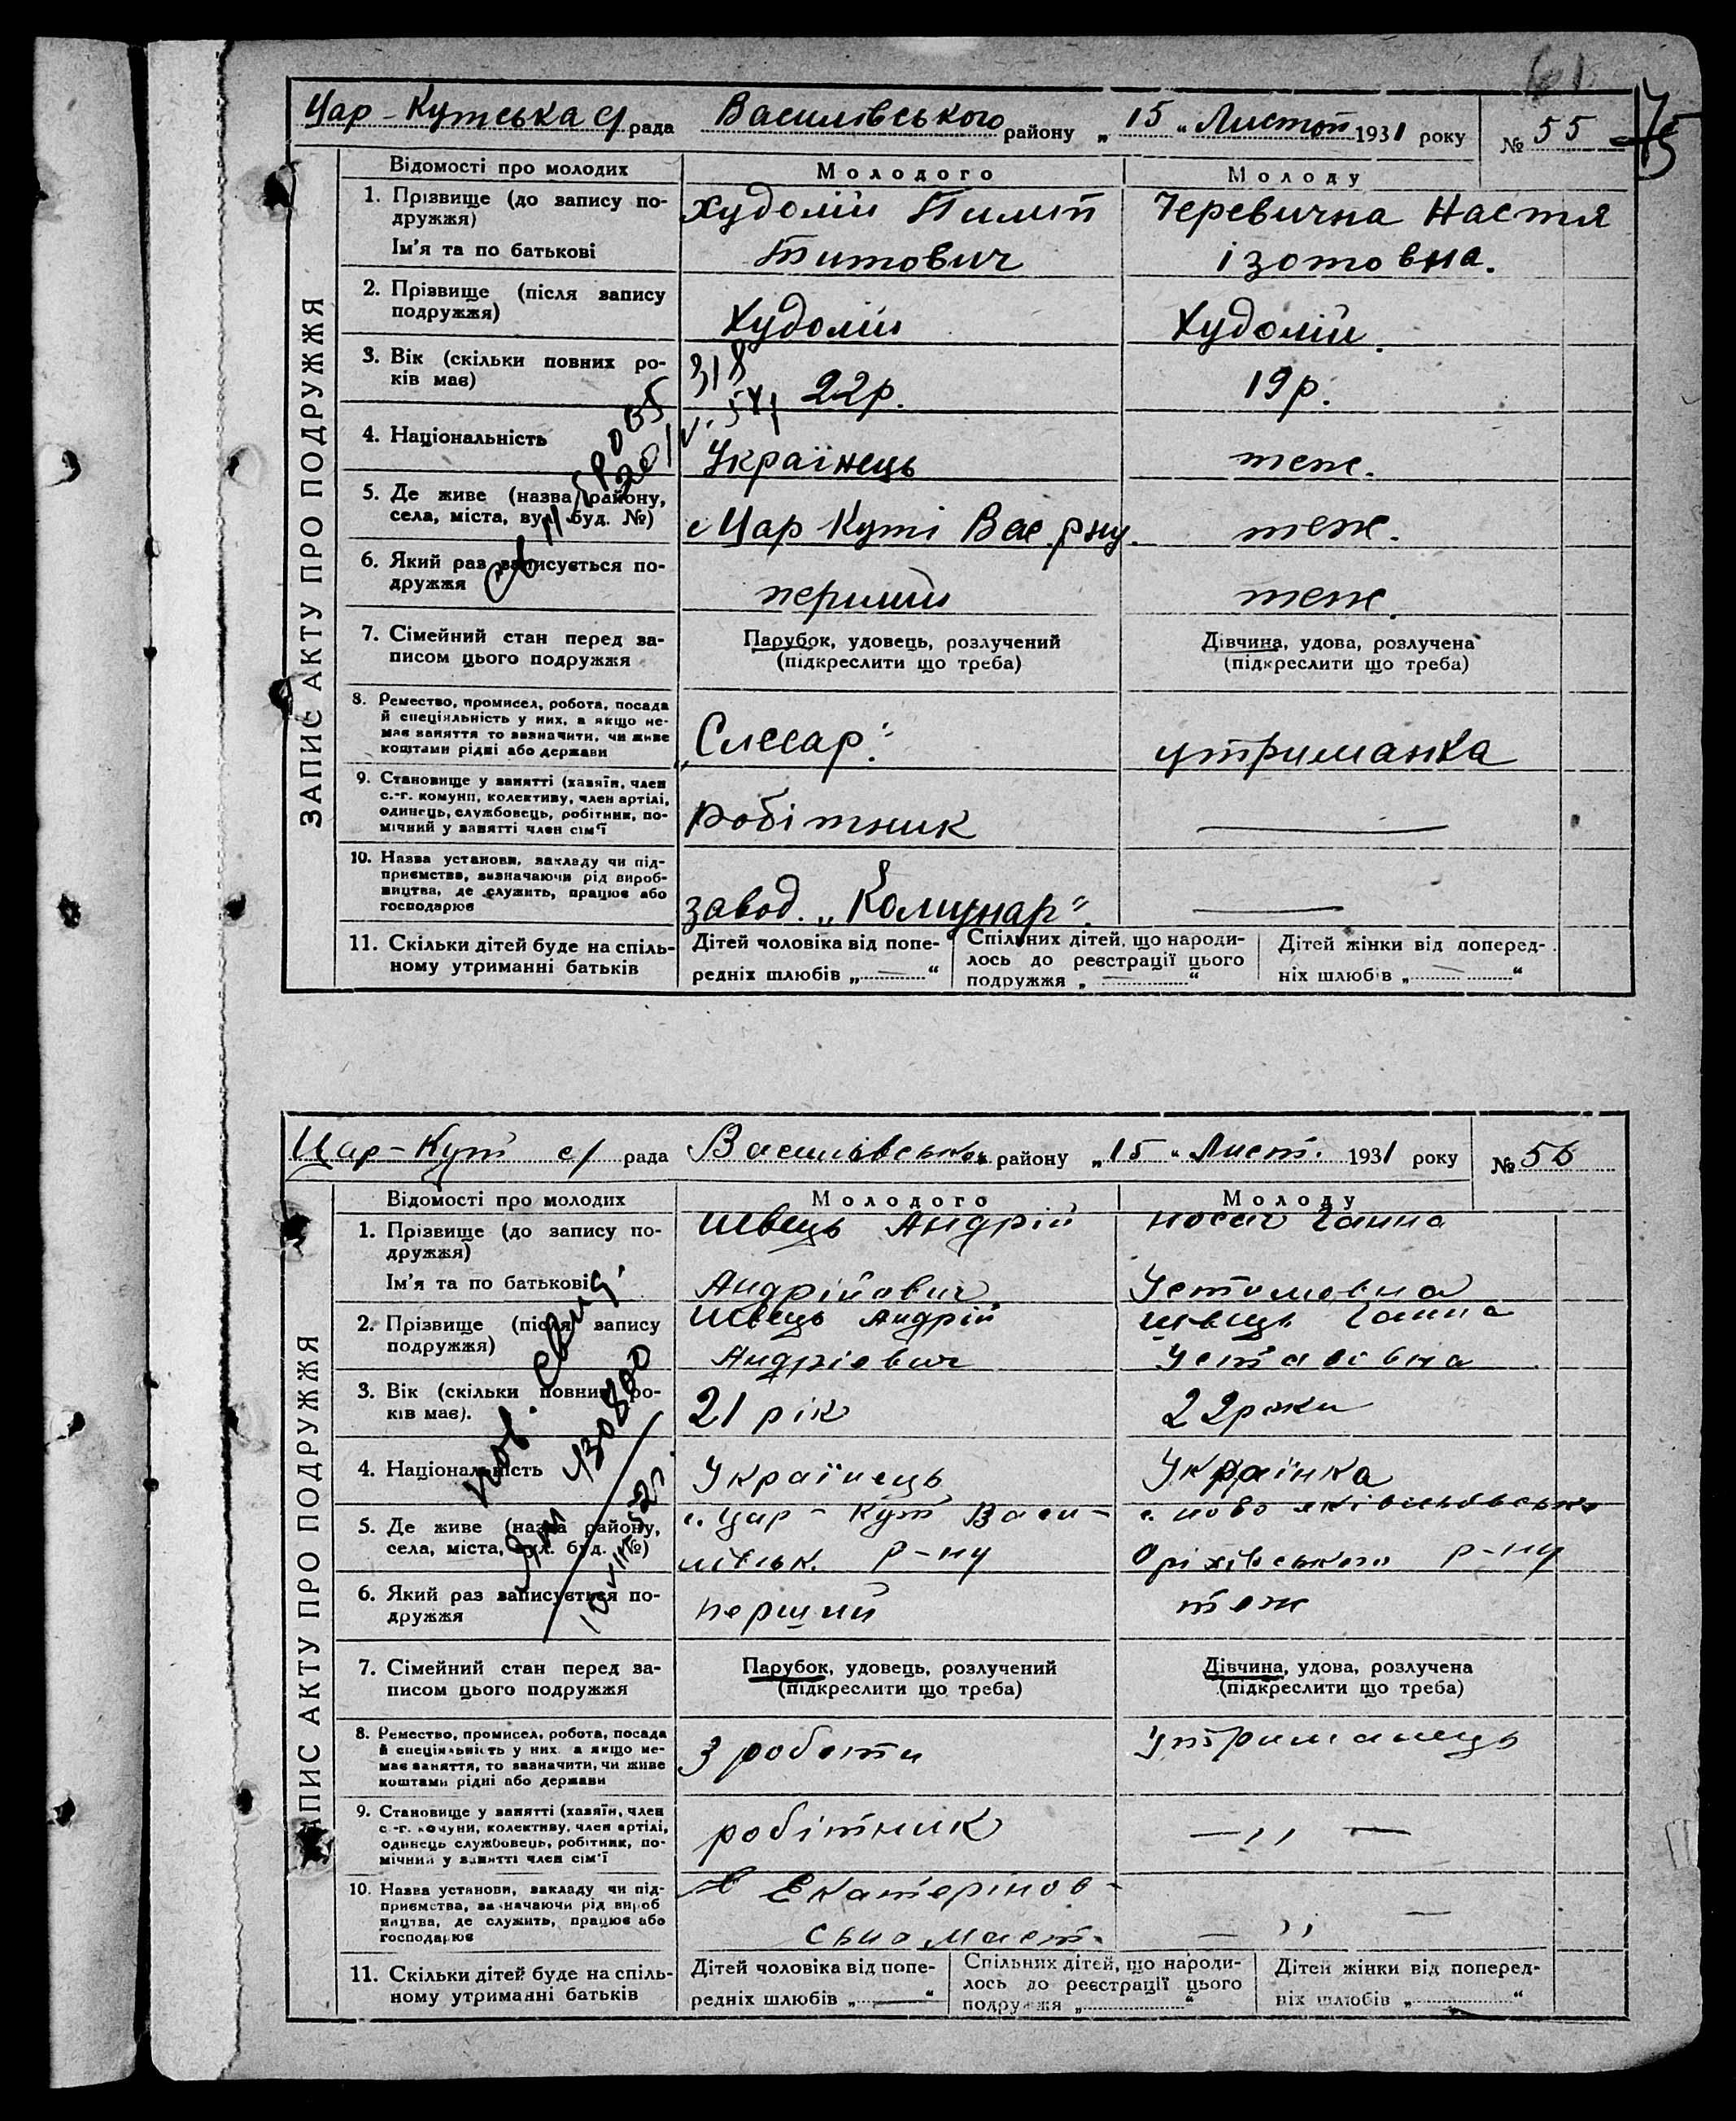 Цар-Кутська с/рада Василівського району „15“ Листоп 1931 року № 55
75
ЗАПИС АКТУ ПРО ПОДРУЖЖЯ
Відомості про молодих Молодого Молоду
1. Прізвище (до запису по-
дружжя)
Ім'я та по батькові
Худолій Пилип
Титович
Черевична Настя
ізотовна.
2. Прізвище (після запису
подружжя)
Худолій
Худолій.
3. Вік (скільки повних ро-
ків має)
22р.
19р.
4. Національність
Українець
теж.
5. Де живе (назва району,
села, міста, вул. буд. №)
с Цар Куті Вас. рну.
теж.
6. Який раз записується по-
дружжя
перший
теж.
7. Сімейний стан перед за-
писом цього подружжя
Парубок, удовець, розлучений
(підкреслити що треба)
Дівчина, удова, розлучена
(підкреслити що треба)
8. Ремество, промисел, робота, посада
й спеціяльність у них, а якщо не-
має заняття то зазначити, чи живе
коштами рідні або держави
„Слесар“.
утриманка
9. Становище у занятті (хазяїн, член
с.-г. комуни, колективу, член артілі,
одинець, службовець, робітник, по-
мічний у занятті член сім'ї
робітник
10. Назва установи, закладу чи під-
приємства, визначаючи рід вироб-
ництва, де служить, працює або
господарює
завод. „Комунар“.
11. Скільки дітей буде на спіль-
ному утриманні батьків
Дітей чоловіка від попе-
редніх шлюбів „ — “
Спільних дітей, що народи-
лось до реєстрації цього
подружжя „ — “
Дітей жінки від поперед-
ніх шлюбів „ — “
Цар-Кут с/ рада Василівського району „15“ Лист. 1931 року № 56
ЗАПИС АКТУ ПРО ПОДРУЖЖЯ
Відомості про молодих Молодого Молоду
1. Прізвище (до запису по-
дружжя)
Ім'я та по батькові
Швець Андрій
Андрійович
Носач Ганна
2. Прізвище (після запису
подружжя)
Швець Андрій
Андріевич
Швець Ганна
3. Вік (скільки повних ро-
ків має).
21 рік
22роки
4. Національність
Українець
Українка
5. Де живе (назва району,
села, міста, вул. буд. №)
с. Цар-Кут Васи-
лівськ. р-ну
Оріхівського р-ну
6. Який раз записується по-
дружжя
перший
теж
7. Сімейний стан перед за-
писом цього подружжя
Парубок, удовець, розлучений
(підкреслити що треба)
Дівчина, удова, розлучена
(підкреслити що треба)
8. Ремество, промисел, робота, посада
й спеціяльність у них а якщо не-
має заняття, то зазначити, чи живе
коштами рідні або держави
З роботи
Утриманець
9. Становище у занятті (хазяїн, член
с.-г. комуни, колективу, член артілі,
одинець службовець, робітник, по-
мічний у занятті член сім'ї
робітник
— „ —
10. Назва установи, закладу чи під-
приємства, зазначаючи рід вироб
ництва, де служить, працює або
господарює
Екатерінов-
— „ —
11. Скільки дітей буде на спіль-
ному утриманні батьків
Дітей чоловіка від попе-
редніх шлюбів „ — “
Спільних дітей, що народи-
лось до реєстрації цього
подружжя „ “
Дітей жінки від поперед-
ніх шлюбів „ “